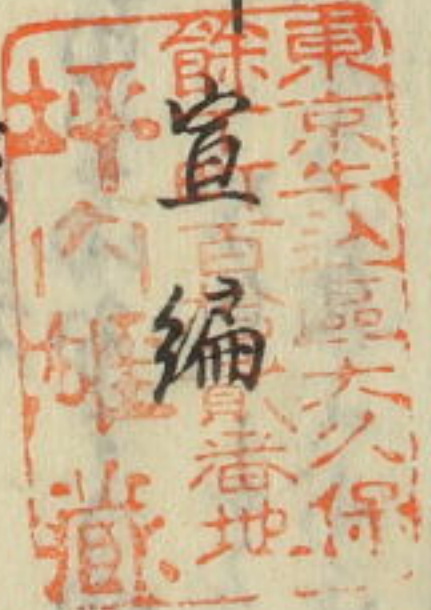 東京牛込區大久保
餘丁町百拾貳番地
坪内雄藏
宣編